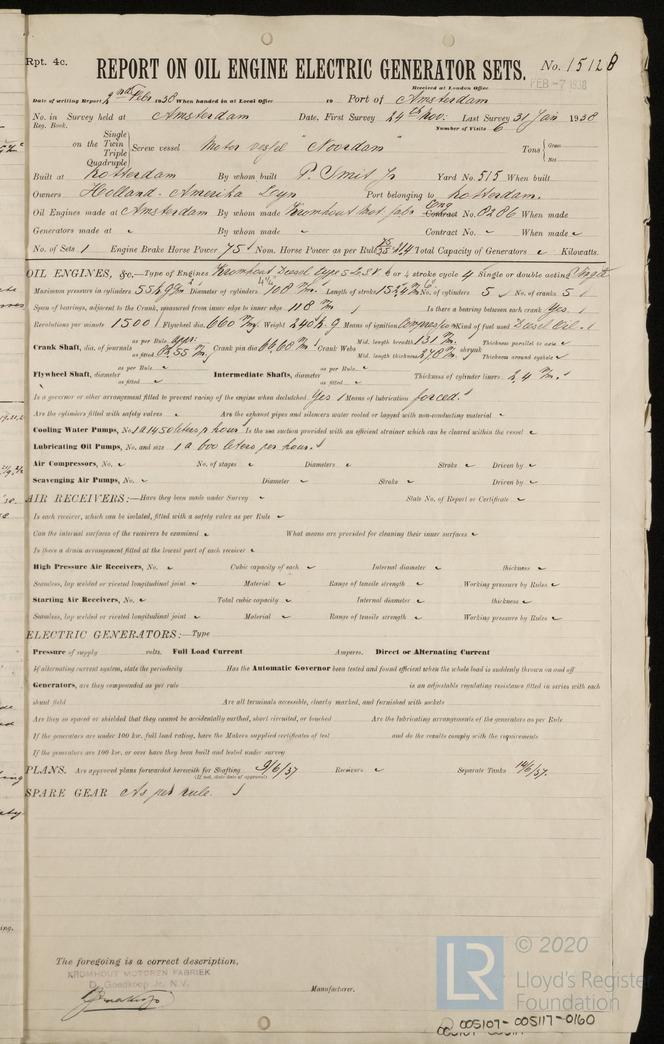 Rpt. 4c.
REPORT ON OIL ENGINE ELECTRIC GENERATOR SETS.
No. 15128
Received at London Office
FEB -7 1938
Date of writing Report 2nd Feb 1938 When handed in at Local Office 19 Port of Amsterdam
No. in Survey held at Amsterdam Date, First Survey 24th Nov: Last Survey 31 Jan 1938
Reg. Book. Number of Visits 6
on the Single Twin Triple Quadruple Screw vessel Motor vessel "Noordam" Tons Gross Net
Built at Rotterdam By whom built P. Smit Jr Yard No. 515 When built
Owners Holland-Amerika Lijn Port belonging to Rotterdam.
Oil Engines made at Amsterdam By whom made Kromhout Mot. fabr. Eng Contract No. 8286 When made
Generators made at By whom made Contract No. When made
No. of Sets 1 Engine Brake Horse Power 75 Nom. Horse Power as per Rule Total Capacity of Generators Kilowatts.
OIL ENGINES, &c.—Type of Engines Kromhout Diesel 2 or 4 stroke cycle 4 Single or double acting Single
Maximum pressure in cylinders 55 Diameter of cylinders 108 m/m. Length of stroke 152,4 m/m No. of cylinders 5 No. of cranks 5
Span of bearings, adjacent to the Crank, measured from inner edge to inner edge 118 m/m Is there a bearing between each crank Yes.
Revolutions per minute 1500 Flywheel dia. 660 m/m. Weight 240 k.g. Means of ignition Compression Kind of fuel used Diesel Oil.
Crank Shaft, dia. of journals as per Rule appr. as fitted Crank pin dia. 66,68 m/m Crank Webs Mid. length breadth 131 m/m Mid. length thickness 27,8 m/m shrunk Thickness parallel to axis Thickness around eyehole
Flywheel Shaft, diameter as per Rule as fitted Intermediate Shafts, diameter as per Rule as fitted Thickness of cylinder liners 2,4 m/m.
Is a governor or other arrangement fitted to prevent racing of the engine when declutched Yes Means of lubrication forced.
Are the cylinders fitted with safety valves Are the exhaust pipes and silencers water cooled or lagged with non-conducting material
Cooling Water Pumps, No. 1 a 1450 liters p hour Is the sea suction provided with an efficient strainer which can be cleared within the vessel
Lubricating Oil Pumps, No. and size 1 a 600 liters per hour.
Air Compressors, No. No. of stages Diameters Stroke Driven by
Scavenging Air Pumps, No. Diameter Stroke Driven by
AIR RECEIVERS:—Have they been made under Survey State No. of Report or Certificate
Is each receiver, which can be isolated, fitted with a safety valve as per Rule
Can the internal surfaces of the receivers be examined What means are provided for cleaning their inner surfaces
Is there a drain arrangement fitted at the lowest part of each receiver
High Pressure Air Receivers, No. Cubic capacity of each Internal diameter thickness
Seamless, lap welded or riveted longitudinal joint Material Range of tensile strength Working pressure by Rules
Starting Air Receivers, No. Total cubic capacity Internal diameter thickness
Seamless, lap welded or riveted longitudinal joint Material Range of tensile strength Working pressure by Rules
ELECTRIC GENERATORS:—Type
Pressure of supply volts. Full Load Current Amperes. Direct or Alternating Current
If alternating current system, state the periodicity Has the Automatic Governor been tested and found efficient when the whole load is suddenly thrown on and off
Generators, are they compounded as per rule is an adjustable regulating resistance fitted in series with each
shunt field Are all terminals accessible, clearly marked, and furnished with sockets
Are they so spaced or shielded that they cannot be accidentally earthed, short circuited, or touched Are the lubricating arrangements of the generators as per Rule
If the generators are under 100 kw. full load rating, have the Makers supplied certificates of test and do the results comply with the requirements
If the generators are 100 kw. or over have they been built and tested under survey
PLANS. Are approved plans forwarded herewith for Shafting 9/6/37 Receivers Separate Tanks 14/6/37.
(If not, state date of approval)
SPARE GEAR As per rule.
The foregoing is a correct description,
KROMHOUT MOTOREN FABRIEK
D. Goedkoop Jr. N.V.
Manufacturer.
LR
© 2020
Lloyd's Register
Foundation
005107-005117-0160